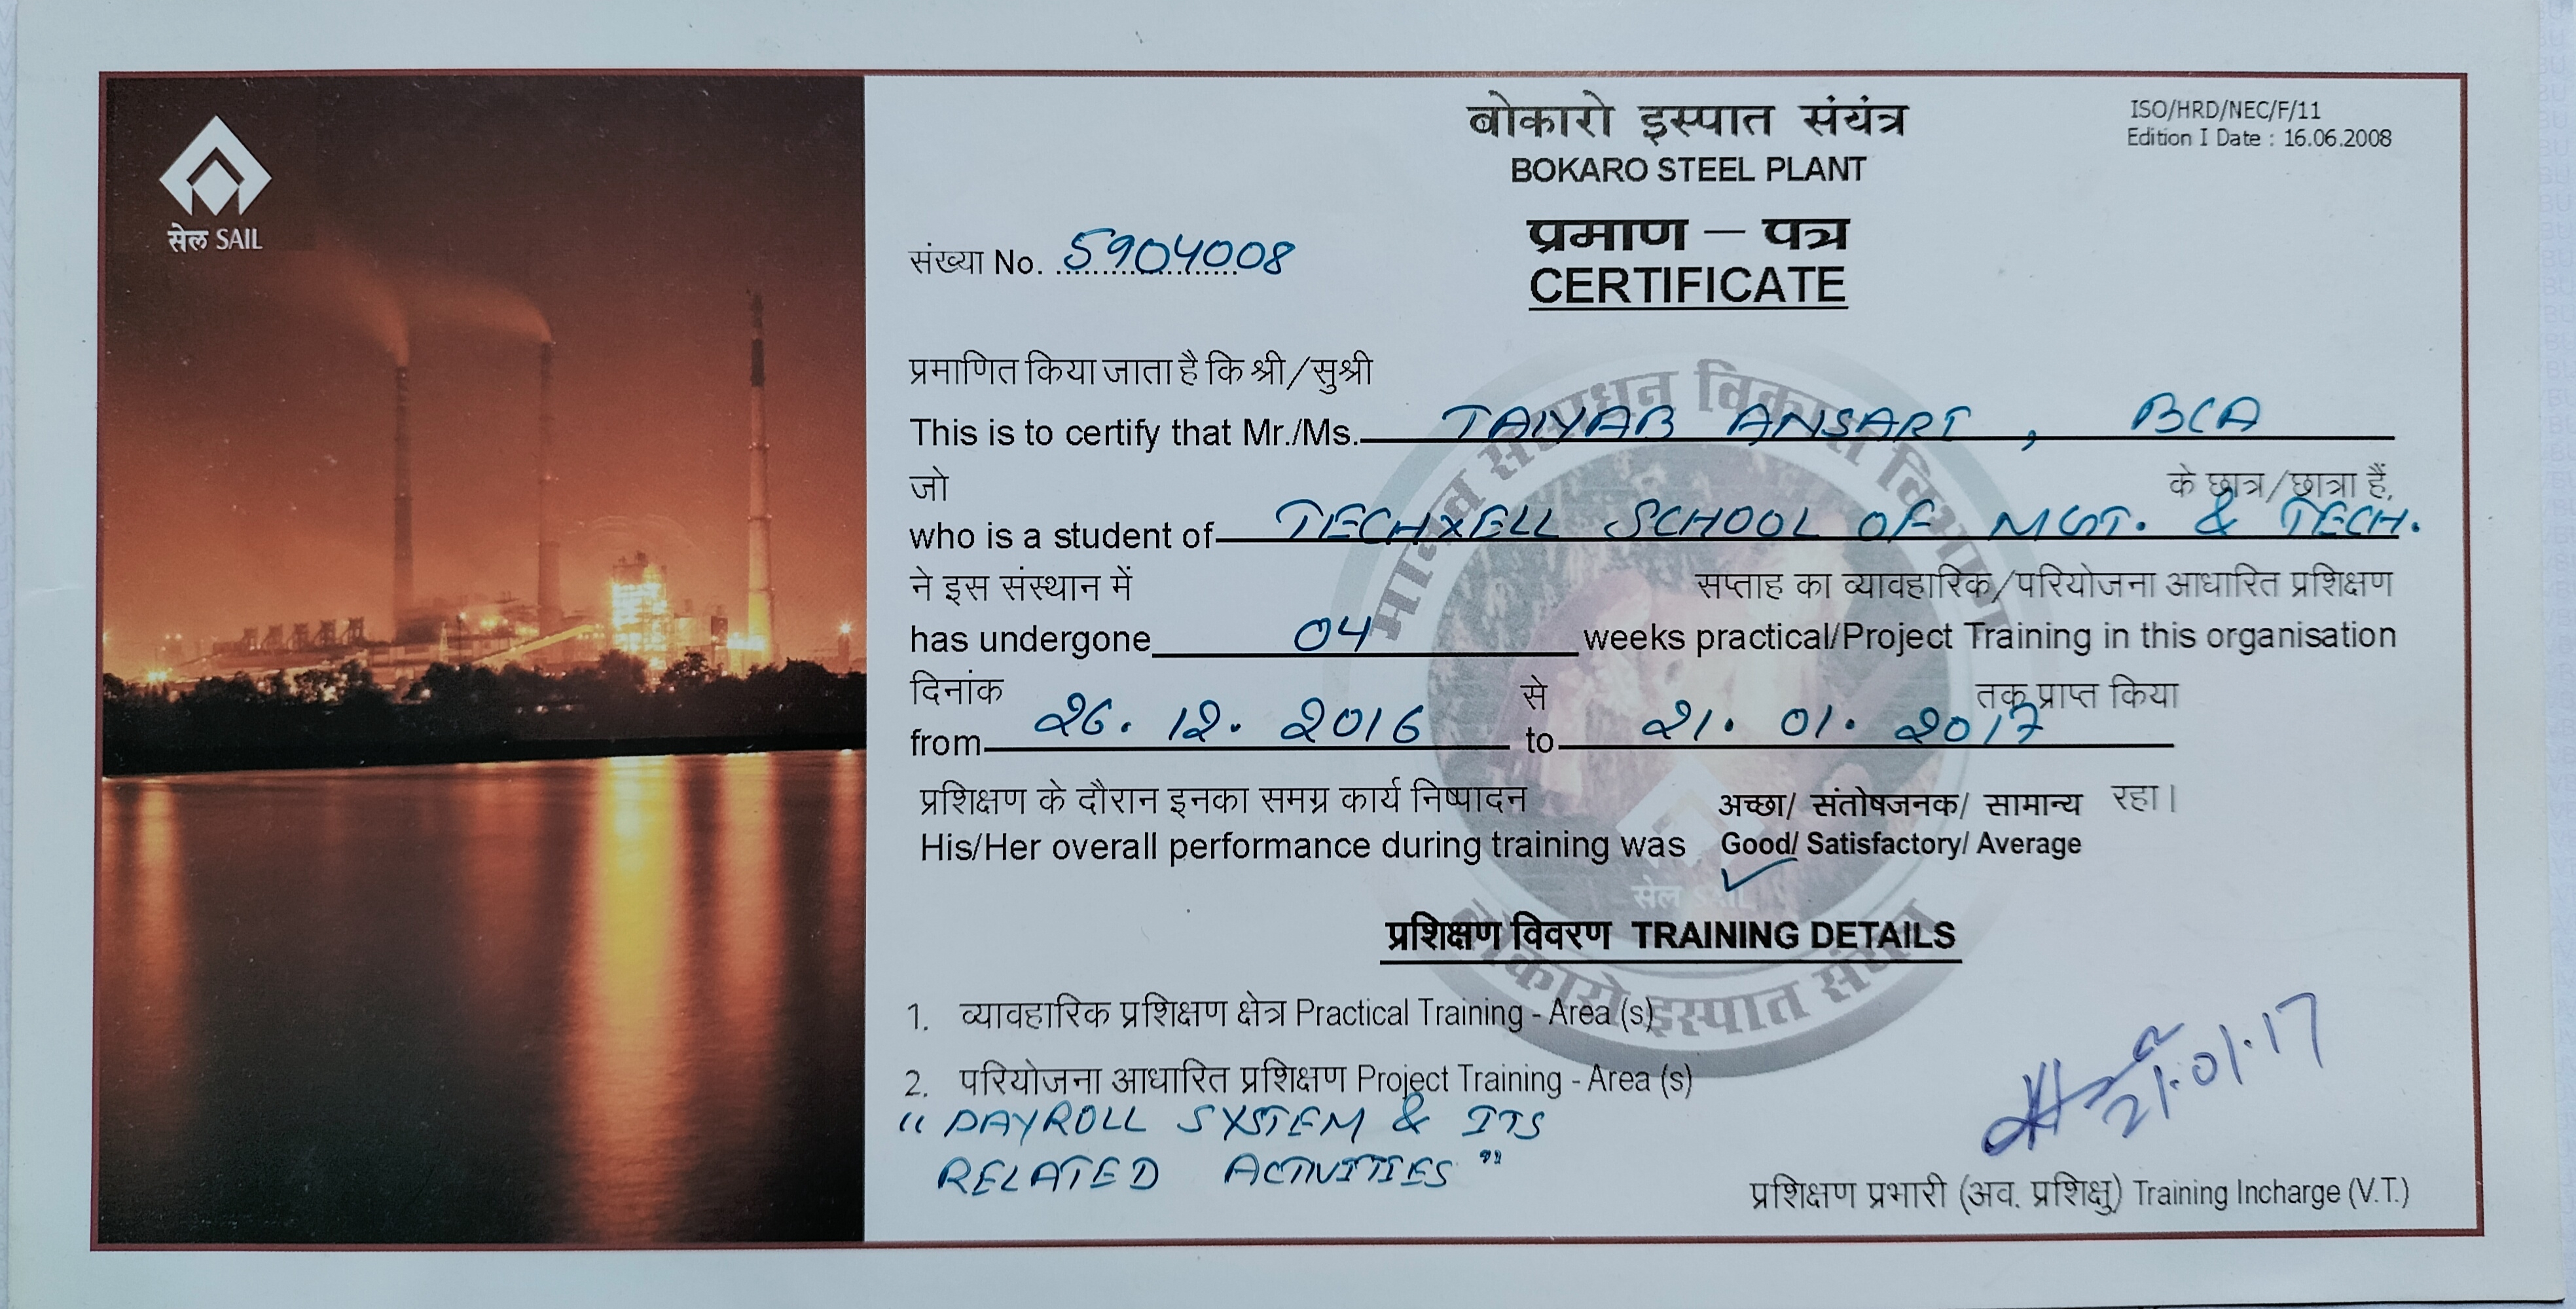 सेल SAIL
बोकारो इस्पात संयंत्र
BOKARO STEEL PLANT
ISO/HRD/NEC/F/11
Edition I Date : 16.06.2008
प्रमाण – पत्र
CERTIFICATE
संख्या No. 5904008
प्रमाणित किया जाता है कि श्री/सुश्री
This is to certify that Mr./Ms. TAIYAB ANSARI, BCA
जो के छात्र/छात्रा हैं,
who is a student of TECHXELL SCHOOL OF MGT. & TECH.
ने इस संस्थान में सप्ताह का व्यावहारिक/परियोजना आधारित प्रशिक्षण
has undergone 04 weeks practical/Project Training in this organisation
दिनांक से तक प्राप्त किया
from 26.12.2016 to 21.01.2017
प्रशिक्षण के दौरान इनका समग्र कार्य निष्पादन अच्छा/ संतोषजनक/ सामान्य रहा।
His/Her overall performance during training was Good/ Satisfactory/ Average
प्रशिक्षण विवरण TRAINING DETAILS
1. व्यावहारिक प्रशिक्षण क्षेत्र Practical Training - Area (s)
2. परियोजना आधारित प्रशिक्षण Project Training - Area (s)
"PAYROLL SYSTEM & ITS
RELATED ACTIVITIES"
21.01.17
प्रशिक्षण प्रभारी (अव. प्रशिक्षु) Training Incharge (V.T.)
मानव संसाधन विकास विभाग
बोकारो इस्पात संयंत्र
सेल SAIL